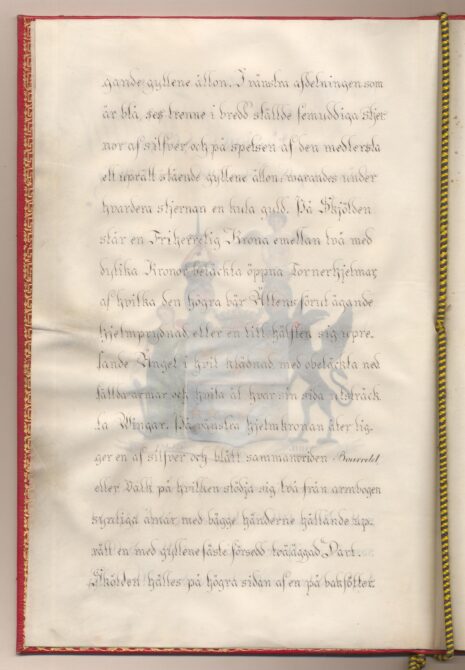 gande gyllene ållon. I vänstra afdelningen som
är blå, ses trenne i bredd ställde femuddiga stjer
nor af silfver, och på spetsen af den medlersta
ett uprätt stående gyllene ållon, warandes under
hvardera stjernan en kula guld. På Skjölden
står en Friherrelig Krona emellan två med
dylika Kronor betäckta öppna Tornerhjelmar,
af hvilka den högra bär Ättens förut ägande
hjelmprydnad eller en till hälften sig upre-
sande Ängel i hvit klädnad med obetäckta ned
fällda armar och hvita åt hvar sin sida utsträck
ta Wingar. På vänstra hjelmkronan åter lig-
ger en af silfver och blått sammanvriden Bourrelet
eller Valk på hvilken stödja sig två från armbogen
synliga armar med bägge händerne hållande up-
rätt en med gyllene fäste försedd tvääggad Dart.
Skölden hålles på högra sidan af en på bakfötter